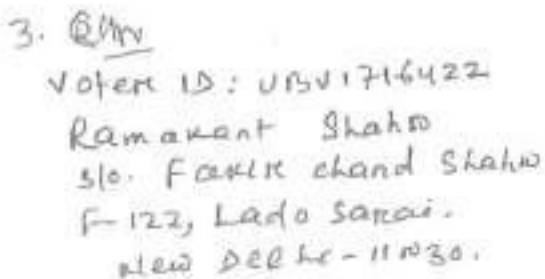 3.
Voter ID: UBV1716422
Ramakant Shahw
S/o. Fakir chand Shahw
F-122, Lado Sarai.
New Delhi - 110030.